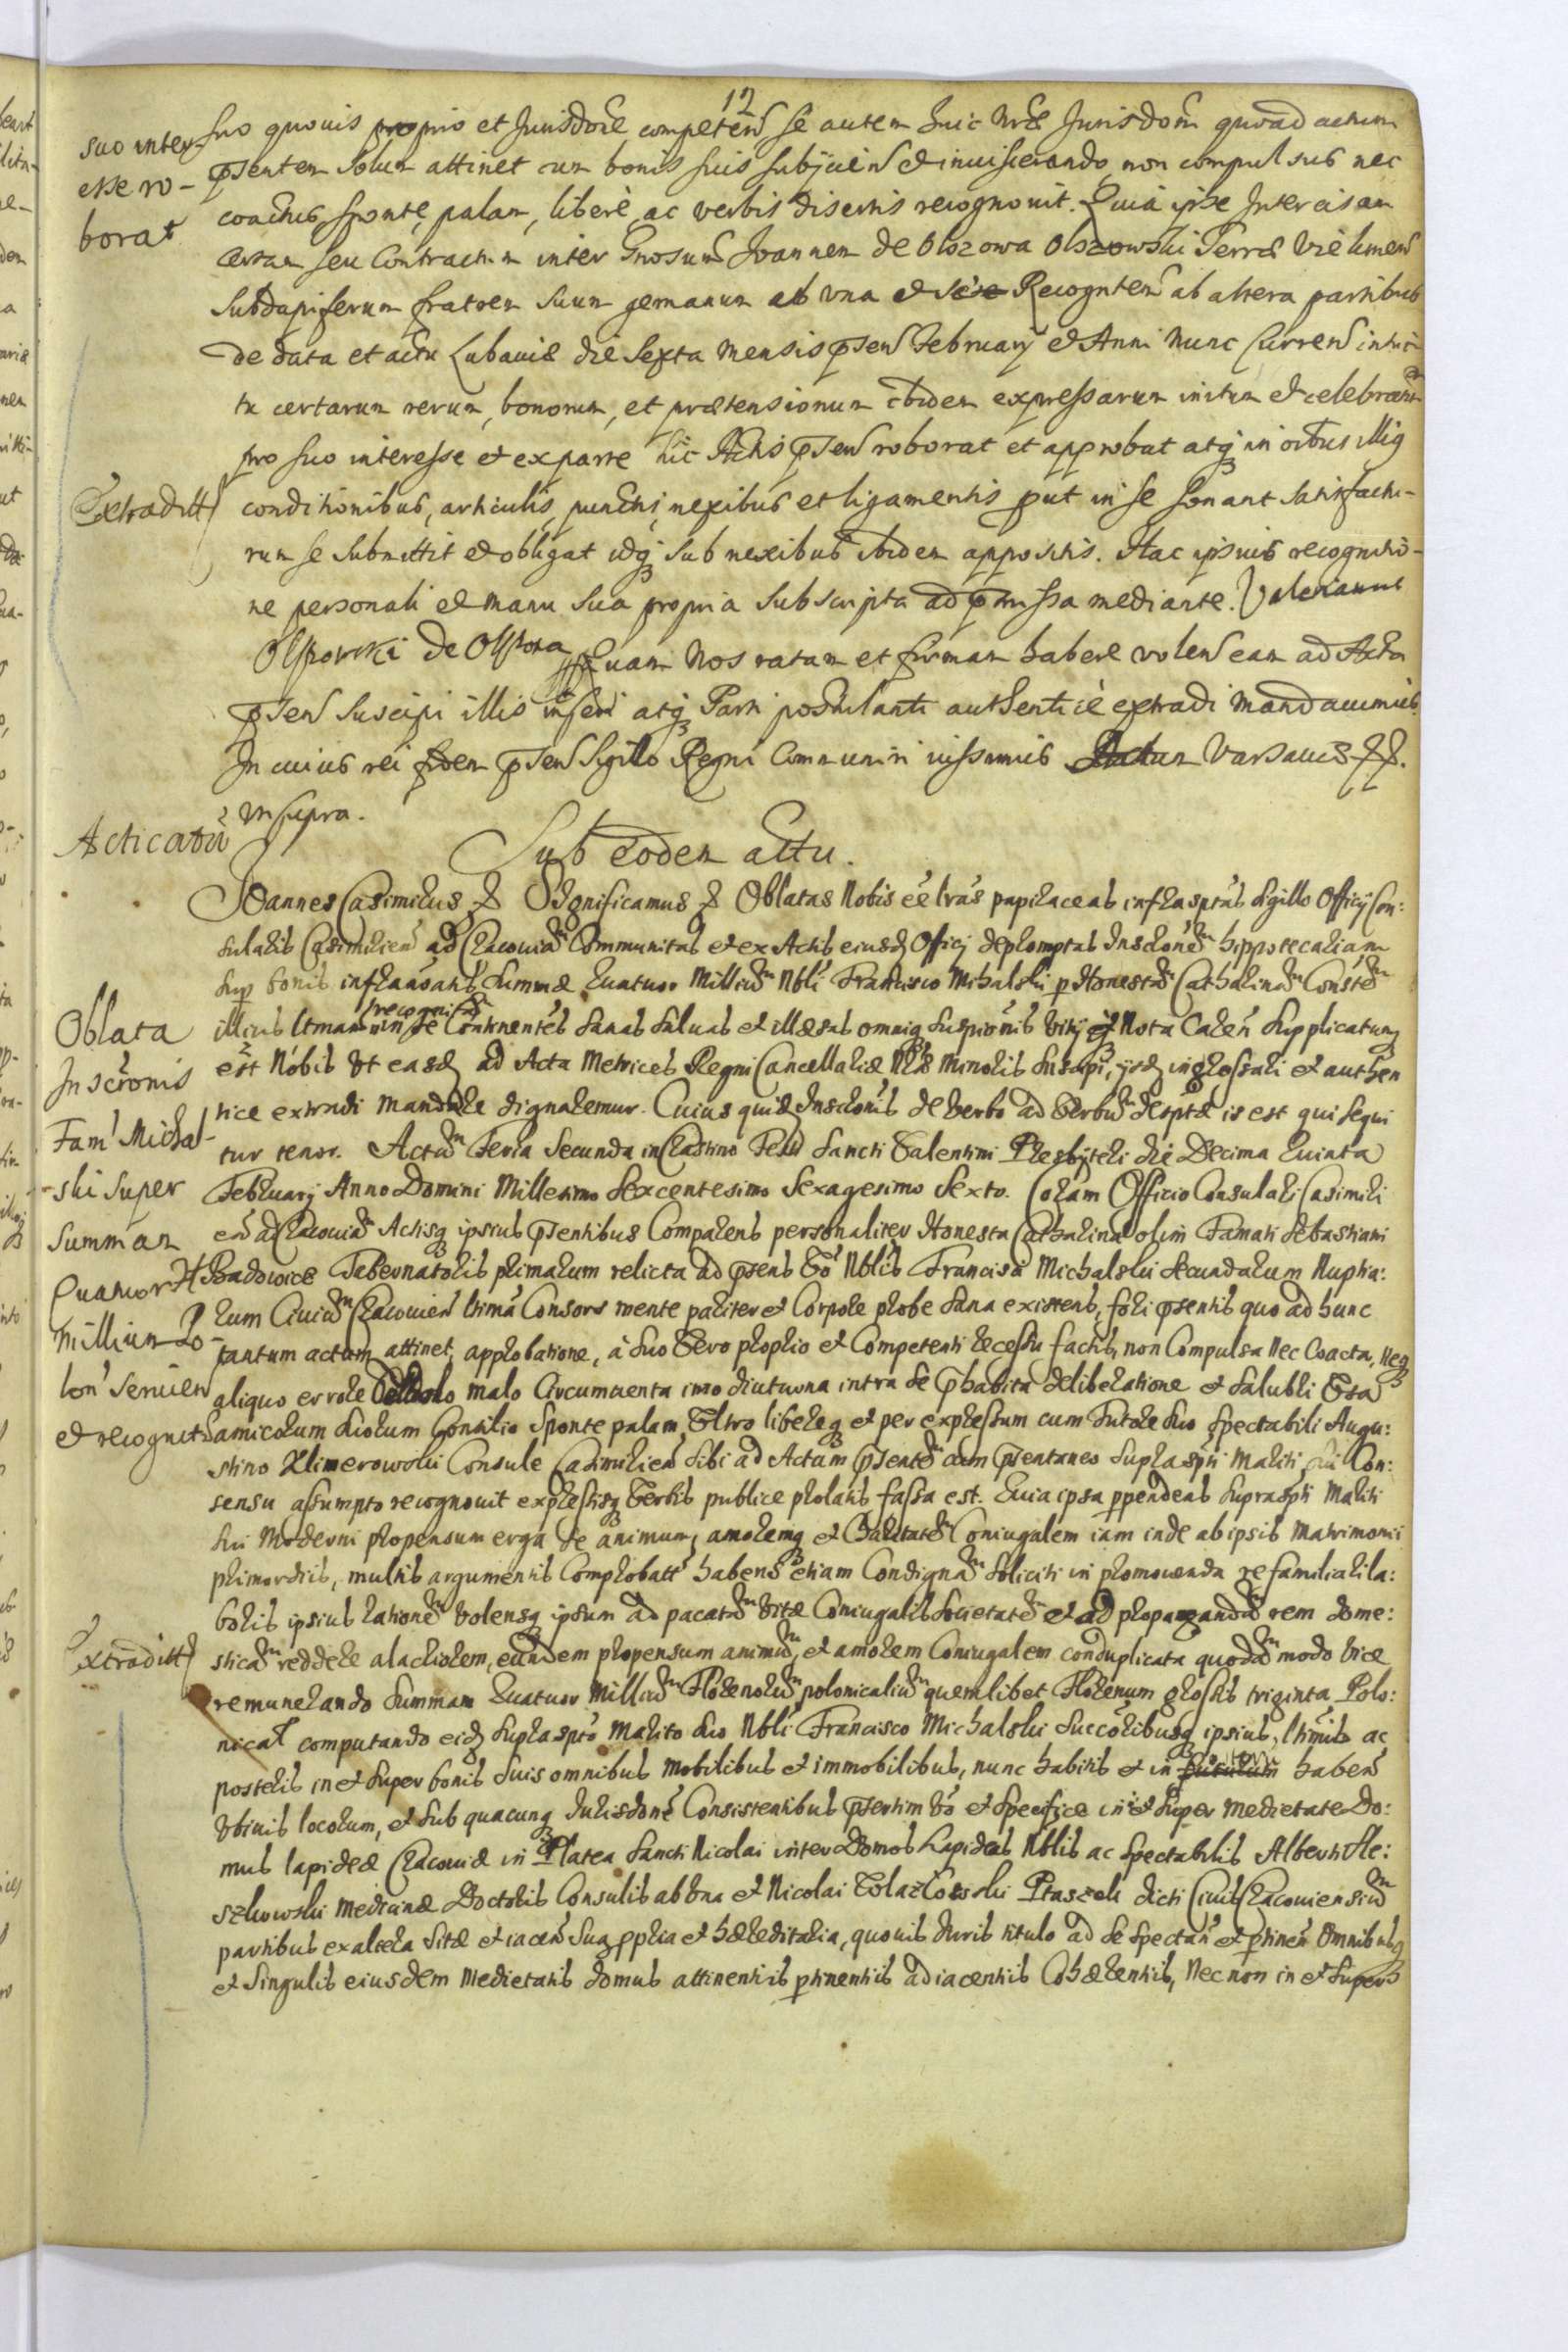 12
suo inter-
esse ro-
borat
suo quovis proprio et Jurisdoñe competen se autem huic Nrae Jurisdoni quoad actum
psentem solum attinet cum bonis suis subijciens et inviscerando, non compulsus nec
coactus, sponte, palam, liberè, ac verbis disertis recognovit. Quia ipse Intercisam
certam seu Contractum inter Gnosum Joannem de Olszowa Olszowski Terrae Vielunen
Subdapiferum fratrem suum germanum ab una et se Recognten ab altera partibus
de data et actu Lubaviae die Sexta mensis psen February et Anni nunc Curren intui-
tu certarum rerum, bonorum, et praetensionum ibidem expressarum initum et celebratum
pro suo interesse et ex parte hic Actis psen roborat et approbat atq in oibus illius
Extraditt
conditionibus, articulis, punctis, nexibus et ligamentis put in se sonant satisfactu-
rum se submittit et obligat idq sub nexibus ibidem appositis. Hac ipsius recognitio-
ne personali et manu sua propria subscripta ad pmissa mediante. Valerianus
Olszowski de Olszowa Quam Nos ratam et firmam habere volen eam ad Acta
psen suscipi illis inseri atq Parti postulanti authenticè extradi mandavimus.
In cuius rei fidem psen Sigillo Regni Communiri iussimus Actum Varsaviae
ut supra.
Acticatũ
Sub eodem actu.
Joannes Casimirus Significamus Oblatas Nobis eẽ lras papiraceas infrasptas sigillo Officij Con:
sularis Casimirien ad Cracoviã Communitas et ex Actis eiusd Officij depromptas Inscronẽ hippotecariam
Sup bonis infranoãtis Summae Quatuor Milliũ Nbli Francisco Michalski p Honestã Catharinã Consortẽ
Oblata
Inscronis
Fam Michal-
ski super
summam
Quatuor
Millium Po-
lon servien
et recognit
illius ltmam recognitã in se Continentes sanas salvas et illaesas omniq suspionis vitij et nota Caren Supplicatumq
est Nobis ut easd ad Acta Metrices Regni Cancellariae Nrae Minoris suscipi, ijsd ingrossari et authen
tice extradi mandare dignaremur. Cuius quid Inscronis de verbo ad verbũ descptae is est qui sequi
tur tenor. Actũ Feria Secunda in Crastino Festi Sancti Valentini Presbyteri die Decima Quinta
February Anno Domini Millesimo Sexcentesimo Sexagesimo Sexto. Coram Officio Consulari Casimiri
en ad Cracoviã Actisq ipsius psentibus Comparens personaliter Honesta Catharina olim Famati Sebastiani
Tabernatoris primarum relicta ad psens vo Nblis Francisci Michalski secundarum Nuptia:
rum Civiũ Cracovien ltima Consors mente pariter et Corpore probe sana existens, fori psentis quo ad hunc
tantum actum attinet, approbatione, à suo vero proprio et Competenti recessu facto, non Compulsa nec Coacta, neq
aliquo errore vel dolo malo Circumventa imo diuturna intra se phabita deliberatione et salubri
amicorum suorum Consilio sponte palam ultro libereq et per expressum cum tutore suo spectabili Augu:
stino Klimerowski Consule Casimirien sibi ad Actum psentẽ cum psentaneo suprasspti Mariti sui Con:
sensu assumpto recognovit expressisq verbis publice prolatis fassa est. Quia ipsa ppendens supraspti Mariti
sui Moderni propensum erga se animum, amoremq et Charitatẽ Coniugalem iam inde ab ipsis matrimonii
primordiis, multis argumentis Comprobatt habens etiam Condignã soliciti in promovenda re familiari la:
boris ipsius rationẽ volensq ipsum ad pacatã vitae Coniugalis societatẽ et ad propagandã rem dome:
Extraditt
sticã reddere alacriorem, eundem propensum animũ, et amorem Coniugalem conduplicata quodã modo vice
remunerando Summam Quatuor Milliũ Florenorũ polonicaliũ quemlibet Florenum grossis triginta Polo:
nical computando eid suprascpto Marito suo Nbli Francisco Michalski successoribusq ipsius, ltimis ac
posteris in et super bonis suis omnibus mobilibus et immobilibus, nunc habitis et in futurum haben
ubivis locorum, et sub quacunq Jurisdone Consistentibus psertim vo et specifice in et super medietate Do:
mus lapideae Cracoviae in Platea Sancti Nicolai inter Domos Lapideas Nblis ac Spectabilis Alberti Ale:
szkowski Medicinae Doctoris Consulis ab una et Nicolai Ptaszek dicti Civis Cracoviensiũ
partibus ex altera sitae et iacen sua ppria et haereditaria, quovis Iuris titulo ad se spectan et ptinen Omnibusq
et singulis eiusdem medietatis domus attinentiis ptinentiis adiacentiis Cohaerentiis, nec non in et super